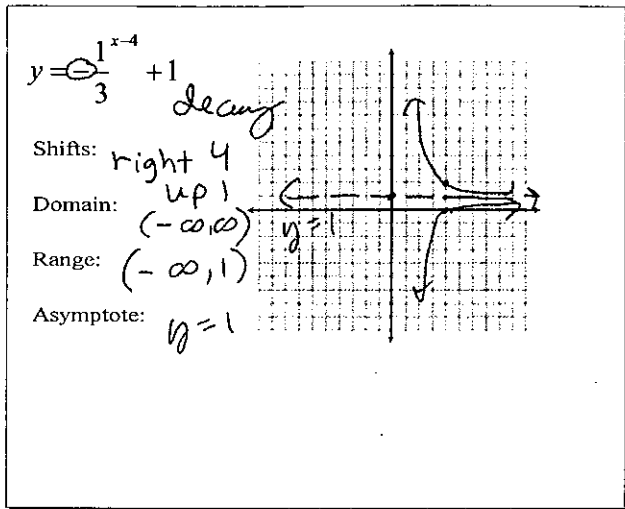 y = - 1/3^(x-4) + 1
decay
Shifts: right 4
up 1
Domain: (-∞,∞)
Range: (-∞, 1)
Asymptote: y = 1
y = 1